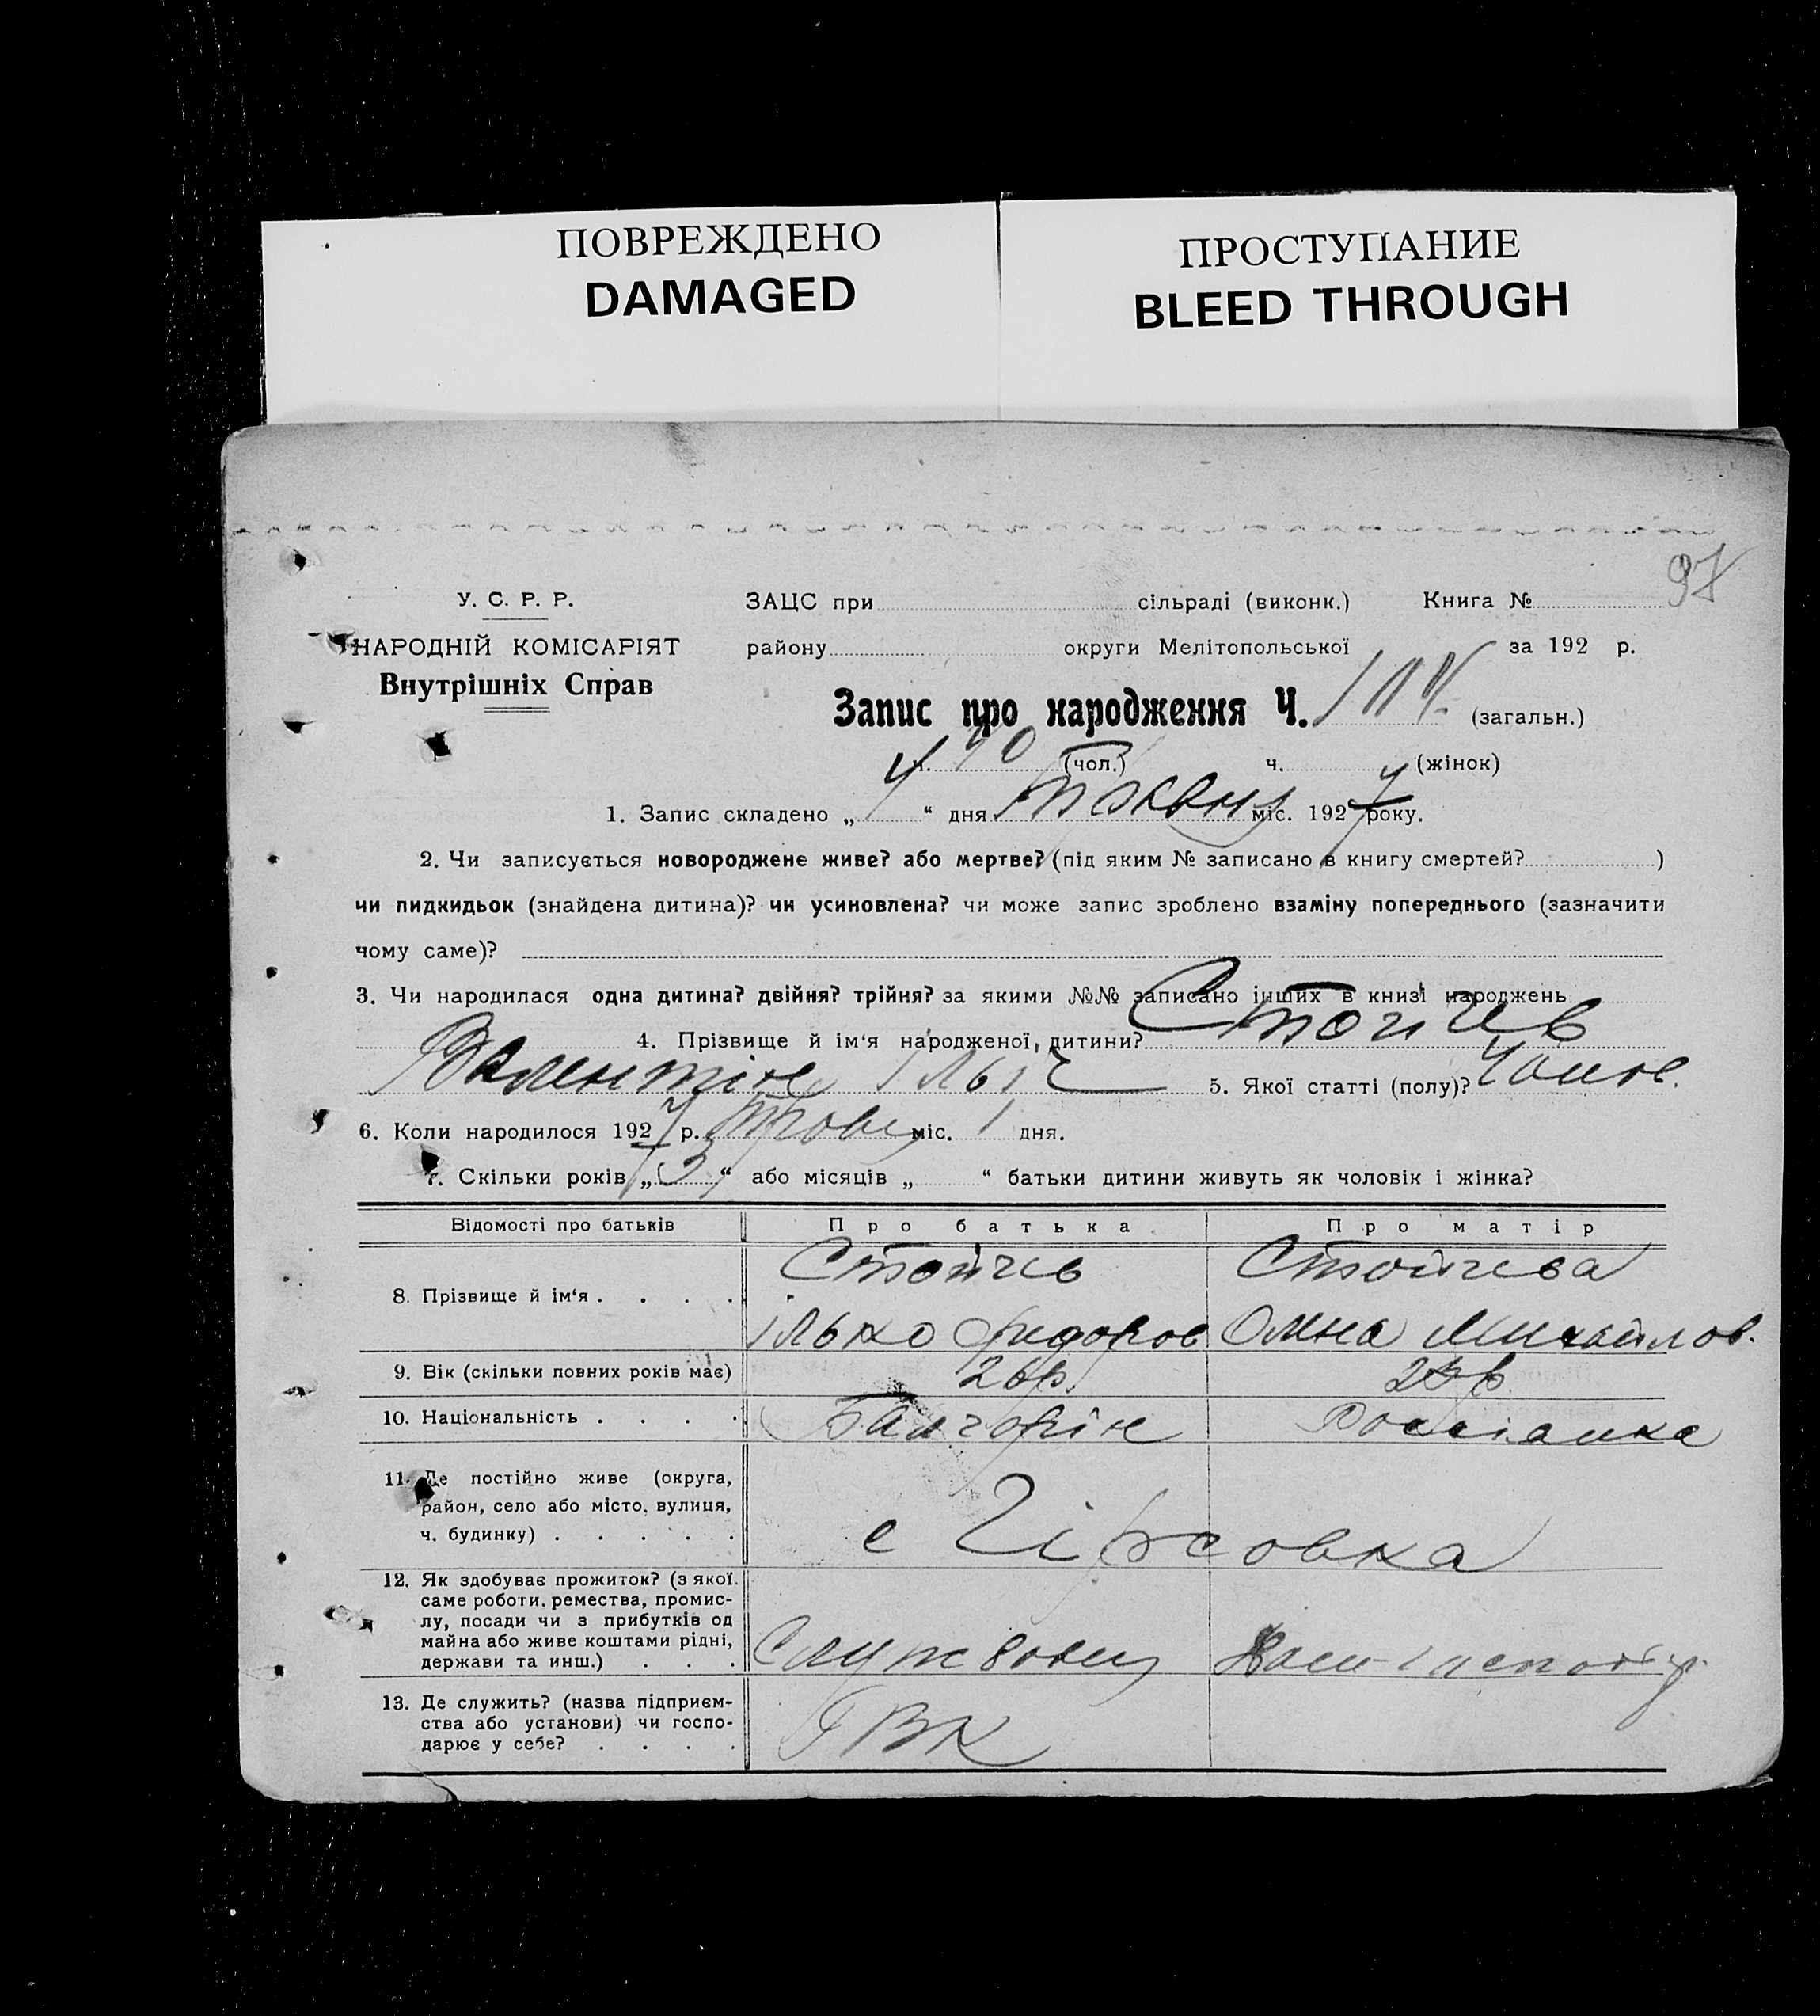 ПОВРЕЖДЕНО
DAMAGED
ПРОСТУПАНИЕ
BLEED THROUGH
97
У. С. Р. Р.
НАРОДНІЙ КОМІСАРІЯТ
Внутрішніх Справ
ЗАЦС при сільраді (виконк.) Книга №
району округи Мелітопольської за 192 р.
Запис про народження Ч. (загальн.)
ч. (чол.) ч. (жінок)
1. Запис складено „ 4 “ дня міс. 1927 року.
2. Чи записується новороджене живе? або мертве? (під яким № записано в книгу смертей? )
чи пидкидьок (знайдена дитина)? чи усиновлена? чи може запис зроблено взаміну попереднього (зазначити
чому саме)?
3. Чи народилася одна дитина? двійня? трійня? за якими №№ записано інших в книзі народжень
4. Прізвище й ім'я народженої дитини? Стойчев
Валентін Ільіч 5. Якої статті (полу)? Чолов.
6. Коли народилося 1927 р. міс. 1 дня.
7. Скільки років „ 3 “ або місяців „ “ батьки дитини живуть як чоловік і жінка?
Відомості про батьків Про батька Про матір
8. Прізвище й ім'я . . . . Стойчев Стойчева
Ілько Фидоров Михайлов.
9. Вік (скільки повних років має) 26р.
10. Національність . . . . Балгорін Россіанка
11. Де постійно живе (округа,
район, село або місто, вулиця,
ч. будинку) . . . . . с Гірсовка
12. Як здобуває прожиток? (з якої
саме роботи, ремества, промис-
лу, посади чи з прибутків од
майна або живе коштами рідні,
держави та инш.) . . .
13. Де служить? (назва підприєм-
ства або установи) чи госпо-
дарює у себе? . . . . РВК